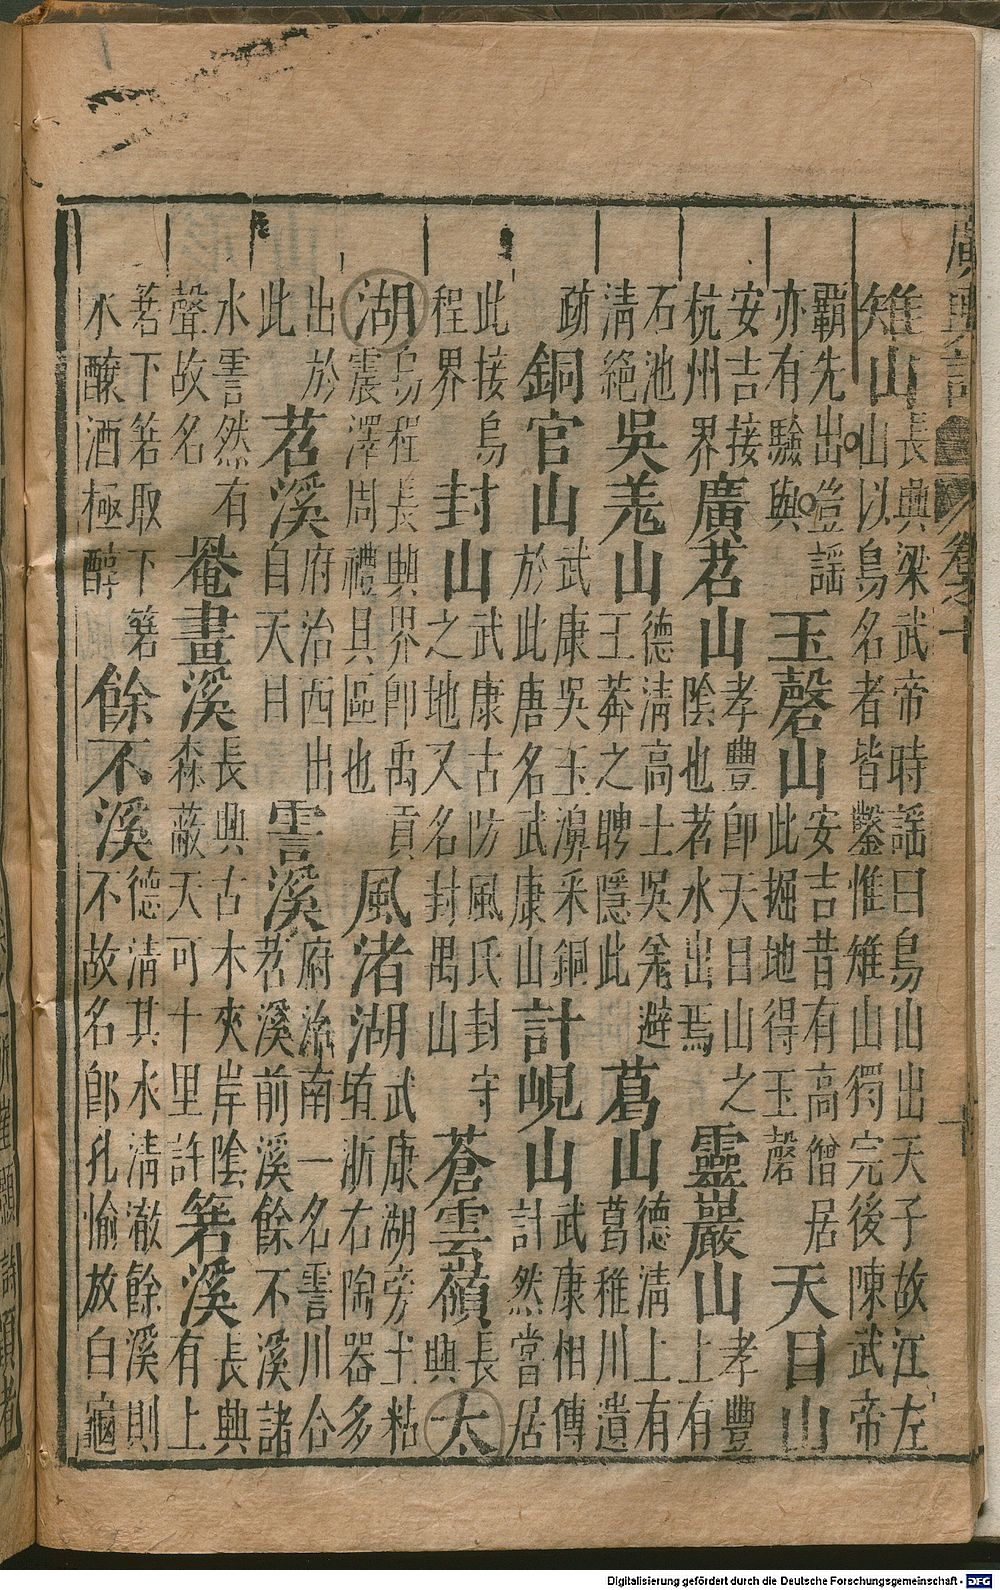 廣輿記 卷之十 十
雉山
長興梁武帝時謠曰鳥山出天子故江左
山以鳥名者皆鑿惟雉山獨完後陳武帝
覇先出豈謠
亦有驗與
玉磬山
安吉昔有高僧居
此掘地得玉磬
天目山
安吉接
杭州界
廣苕山
孝豐即天目山之
陰也苕水出焉
靈巖山
孝豐
上有
石池
清絕
吳羌山
德清高士吳羌避
王莽之聘隱此
葛山
德清上有
葛稚川遺
銅官山
武康吳王濞采銅
於此唐名武康山
計峴山
武康相傳
計然嘗居
此接烏
程界
封山
武康古防風氏封守
之地又名封禺山
蒼雲嶺
長
興
太
湖
烏程長興界即禹貢
震澤周禮具區也
風渚湖
武康湖旁土粘
埴浙右陶器多
出於
此
苕溪
府治西出
自天目
霅溪
府治南一名霅川合
苕溪前溪餘不溪諸
水霅然有
聲故名
罨畫溪
長興古木夾岸陰
森蔽天可十里許
箬溪
長興
有上
箬下箬取下箬
水釀酒極醇
餘不溪
德清其水清澈餘溪則
不故名即孔愉放白龜
Digitalisierung gefördert durch die Deutsche Forschungsgemeinschaft - DFG